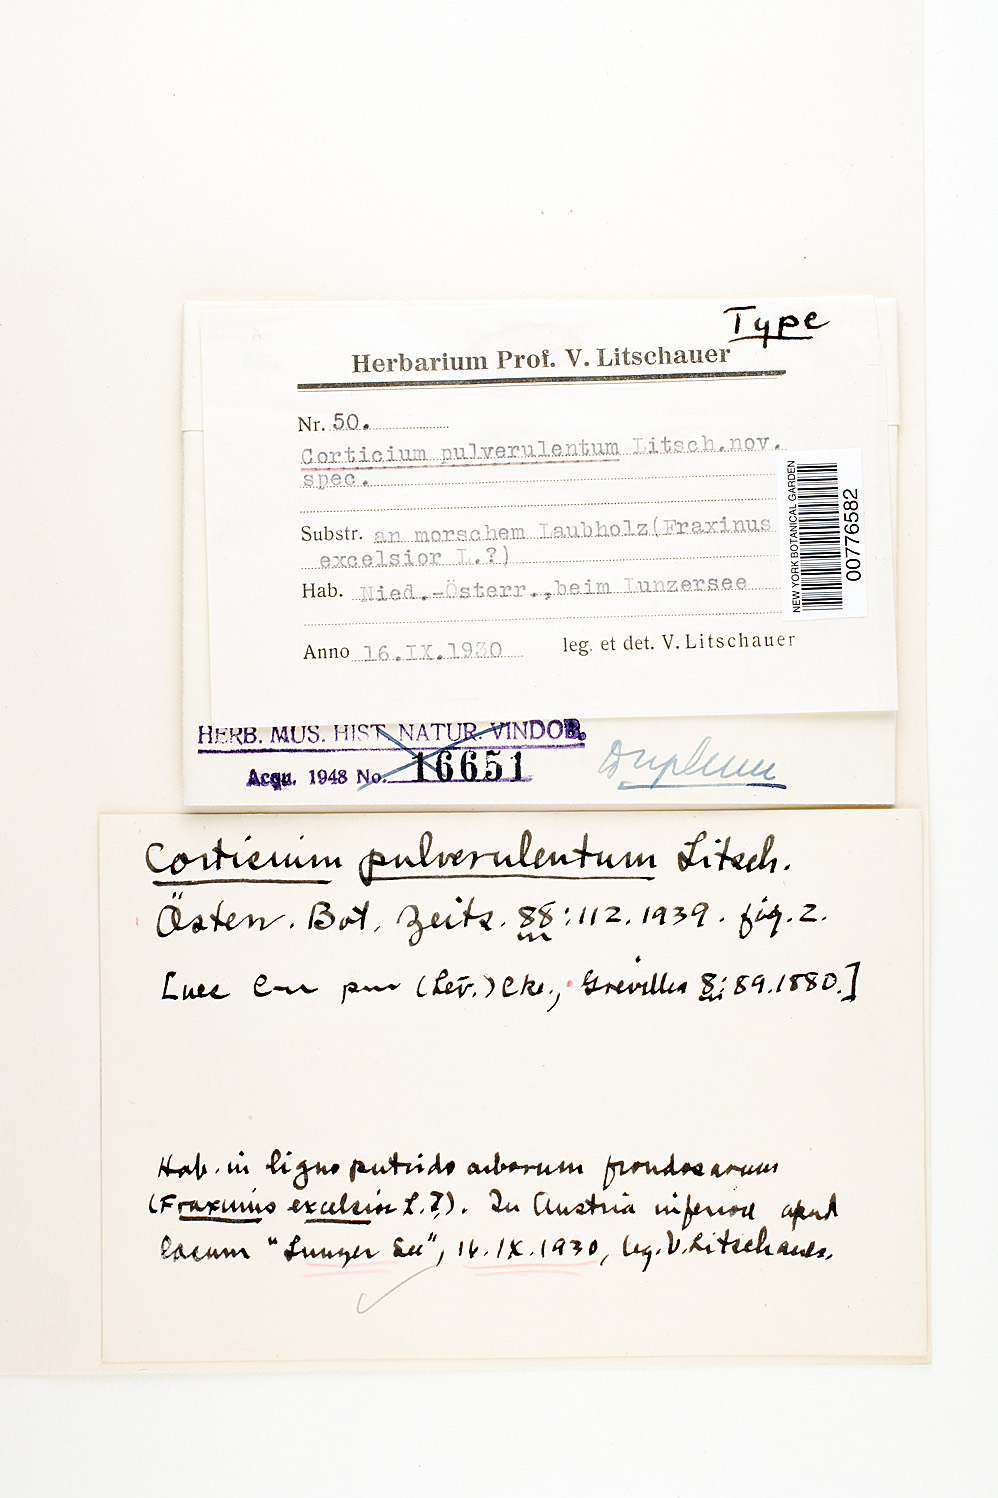 Type
Herbarium Prof. V. Litschauer
Nr. 50.
Corticium pulverulentum Litsch.nov.
spec.
Substr. an morschem Laubholz(Fraxinus
excelsior L.?)
Hab. Nied.-Österr.,beim Lunzersee
Anno 16.IX.1930 leg. et det. V. Litschauer
NEW YORK BOTANICAL GARDEN
00776582
HERB. MUS. HIST. NATUR. VINDOB.
Acqu. 1948 No. 16651
Duplum
Corticium pulverulentum Litsch.
Österr. Bot. Zeits. 88:112.1939. fig. 2.
(Lév.) Cke., Grevillea 8:89.1880.]
Hab. in ligno putrido arborum frondosarum
(Fraxinus excelsior L.?). In Austria inferiore apud
lacum "Lunzer See", 16.IX.1930, leg. V. Litschauer.